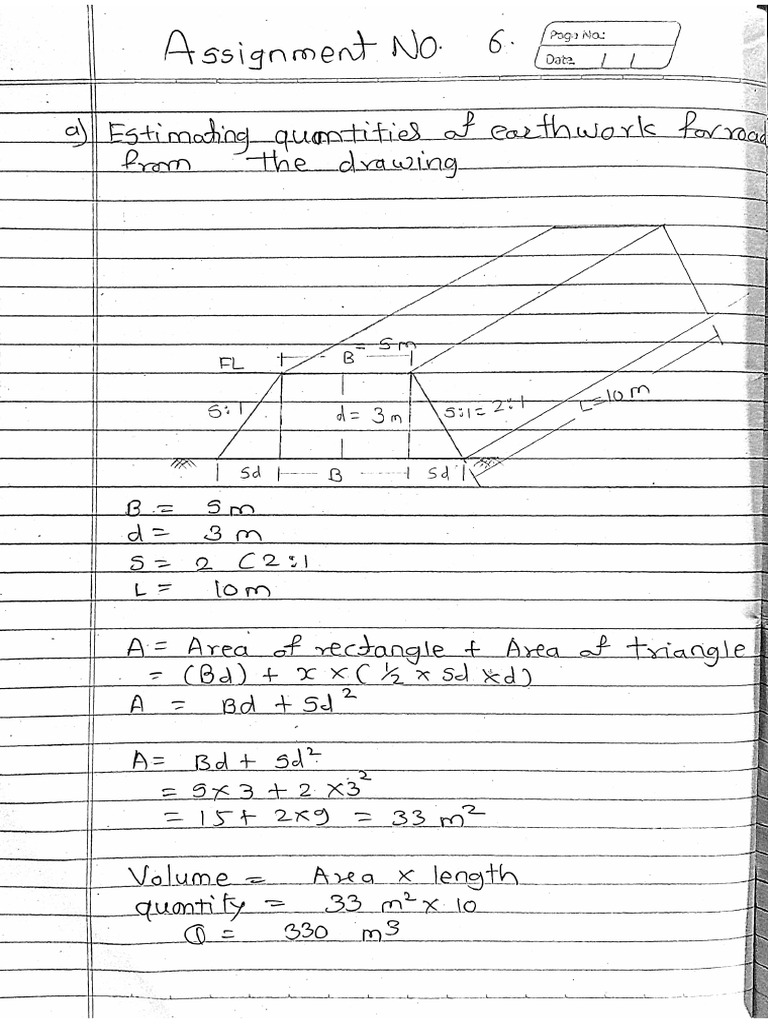 Assignment No. 6.
Page No.:
Date / /
a) Estimating quantities of earthwork for road
from the drawing
B = 5m
FL
S:1
d = 3m
S:1 = 2:1
L=10m
Sd B Sd
B = 5m
d = 3 m
S = 2 (2:1
L = 10m
A = Area of rectangle + Area of triangle
= (Bd) + x × (1/2 × Sd × d)
A = Bd + Sd²
A = Bd + Sd²
= 5×3 + 2 ×3²
= 15+ 2×9 = 33 m²
Volume = Area × length
quontity = 33 m² × 10
Q = 330 m3